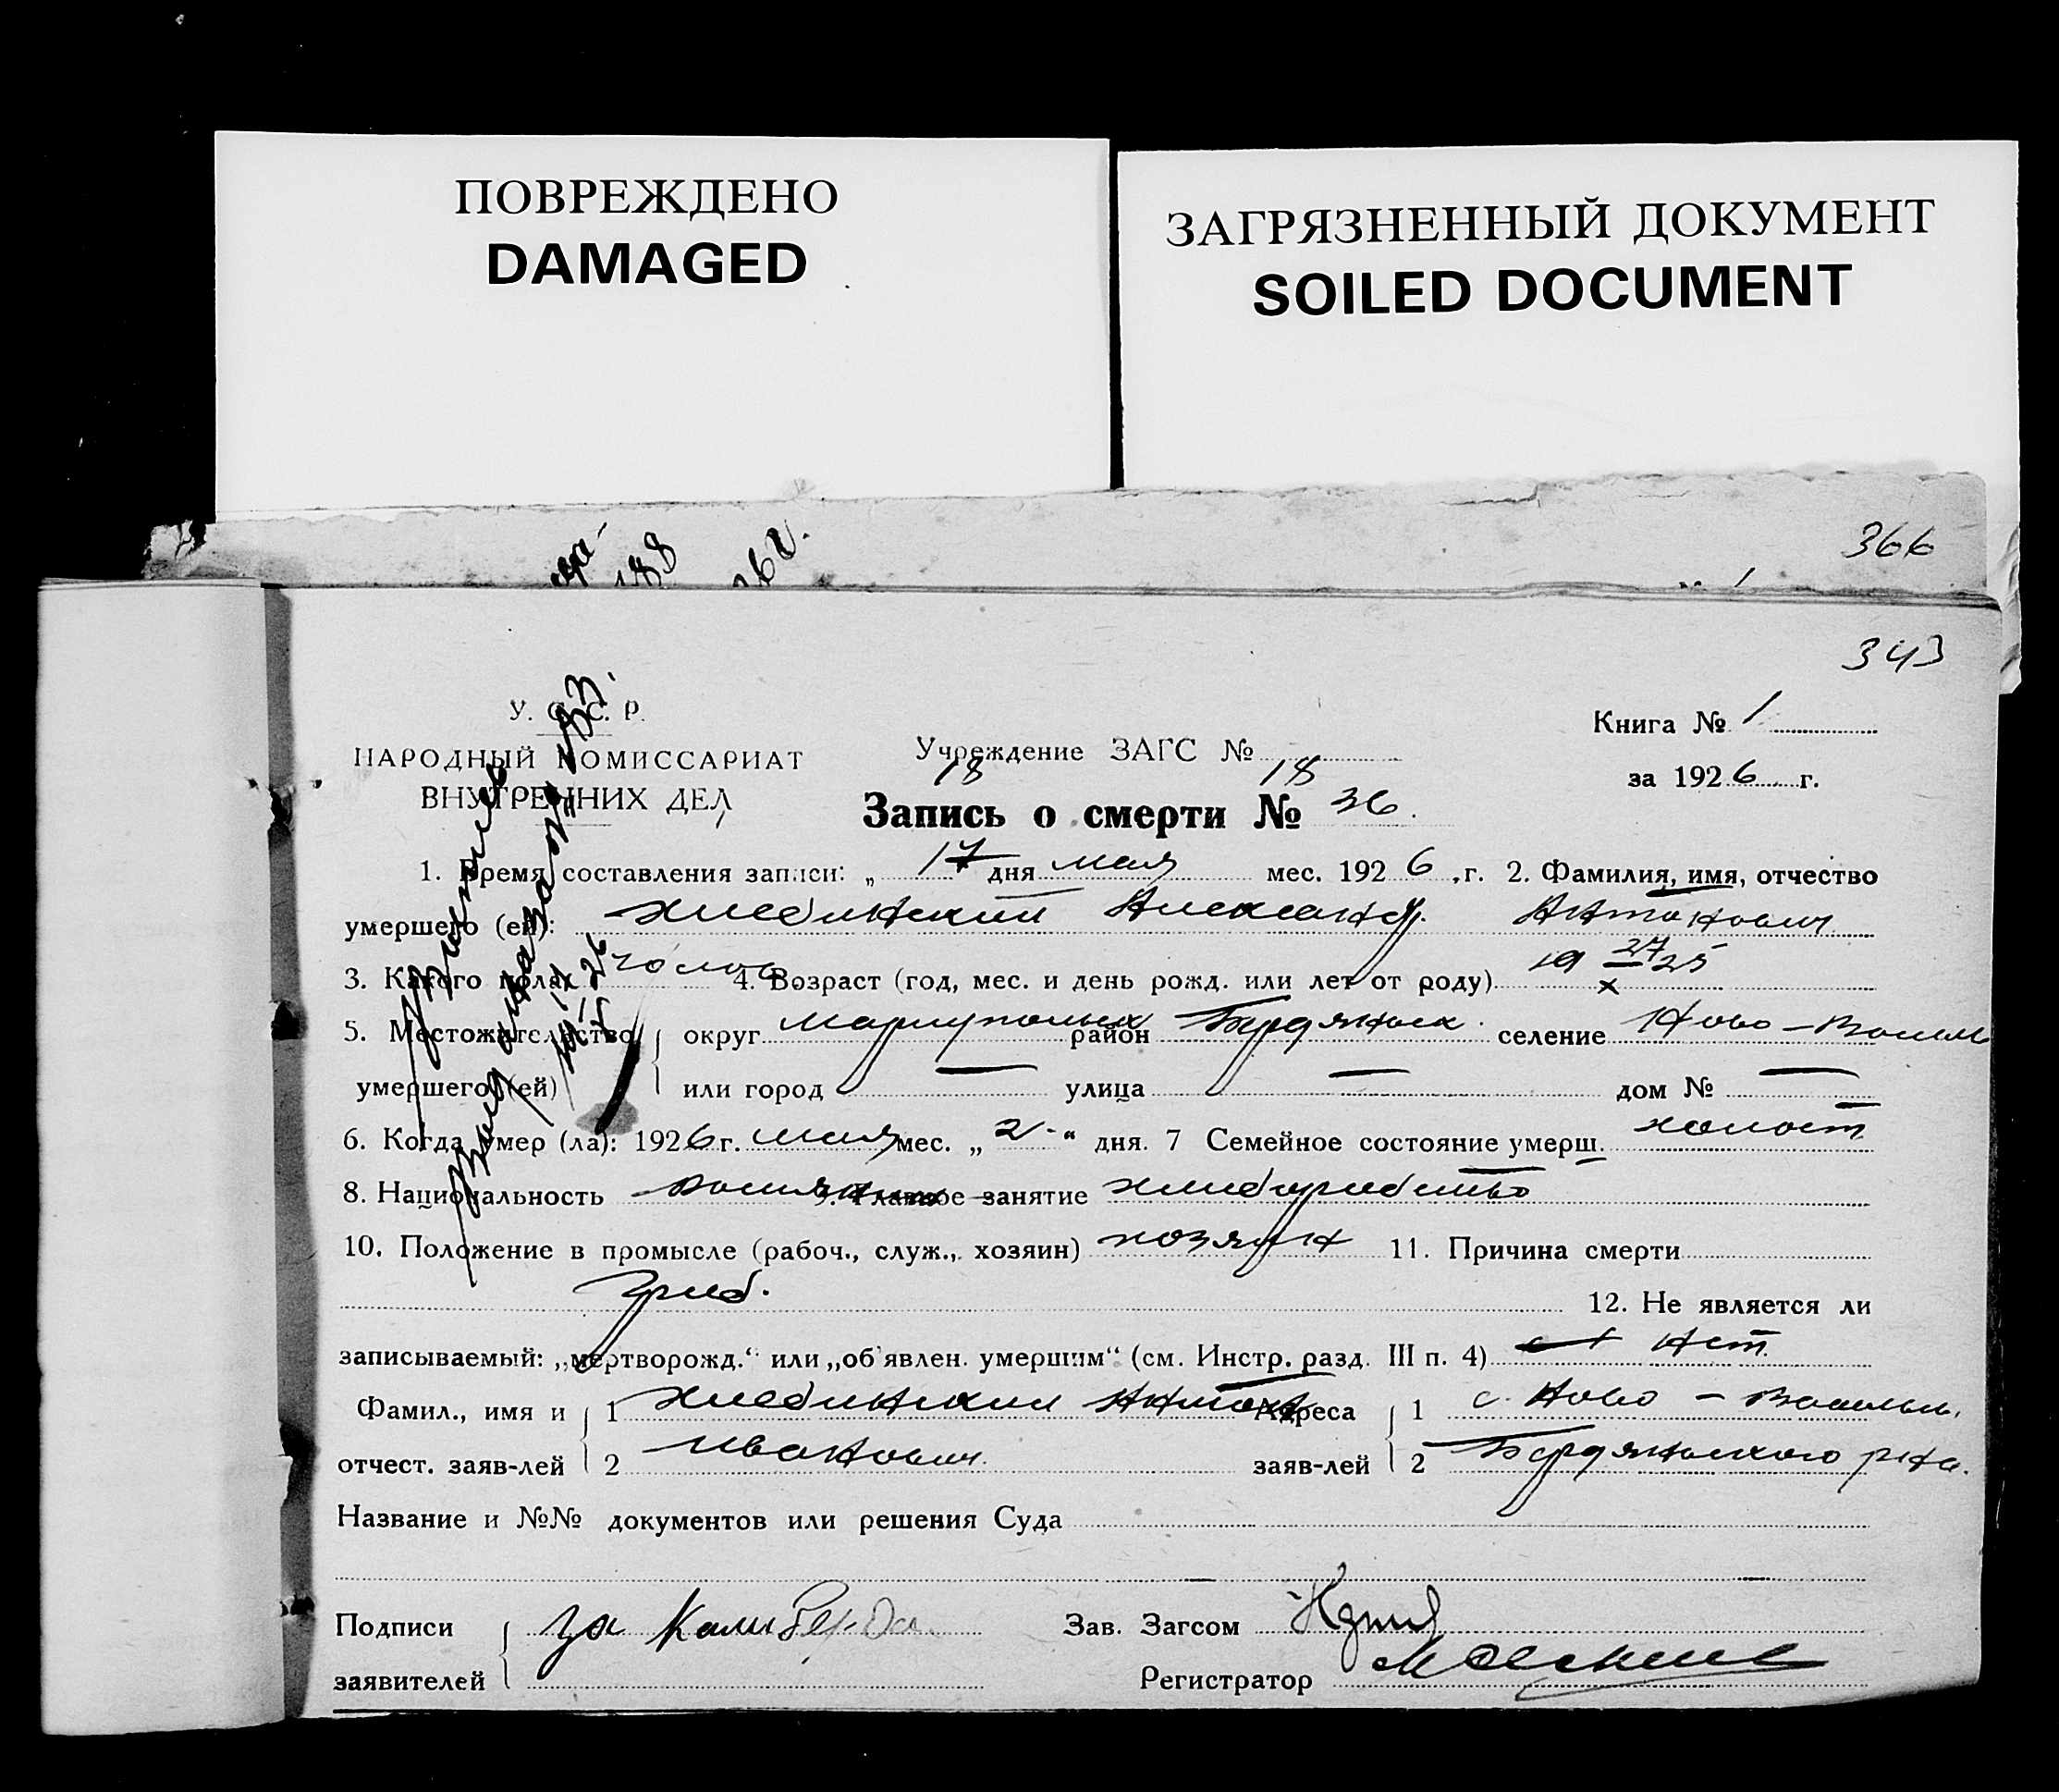 ПОВРЕЖДЕНО
DAMAGED
ЗАГРЯЗНЕННЫЙ ДОКУМЕНТ
SOILED DOCUMENT
188
366
343
У. С. С. Р.
НАРОДНЫЙ КОМИССАРИАТ
ВНУТРЕННИХ ДЕЛ
Учреждение ЗАГС №
18 18
Запись о смерти № 36.
Книга № 1
за 1926 г.
1. Время составления записи: „ 17 дня мая мес. 1926 г. 2. Фамилия, имя, отчество
умершего (ей): Хлебинский Александр. Антонович
3. Какого пола 4. Возраст (год, мес. и день рожд. или лет от роду) 19 27/X 25
5. Местожительство округ Мариупольск район Бердянск. селение Ново-Васил
умершего (ей) или город — улица — дом № —
6. Когда умер (ла): 1926 г. мая мес. „ 2 “ дня. 7 Семейное состояние умерш. холост
8. Национальность 9. Главное занятие хлеборобство
10. Положение в промысле (рабоч., служ., хозяин) хозяин 11. Причина смерти
12. Не является ли
записываемый: „мертворожд.“ или „об'явлен. умершим“ (см. Инстр. разд. III п. 4) нет
Фамил., имя и 1 Хлебинский Антон Адреса 1 с. Ново-Васильев.
отчест. заяв-лей 2 Иванович. заяв-лей 2 Бердянского р-на.
Название и №№ документов или решения Суда
Подписи за Зав. Загсом
заявителей Регистратор